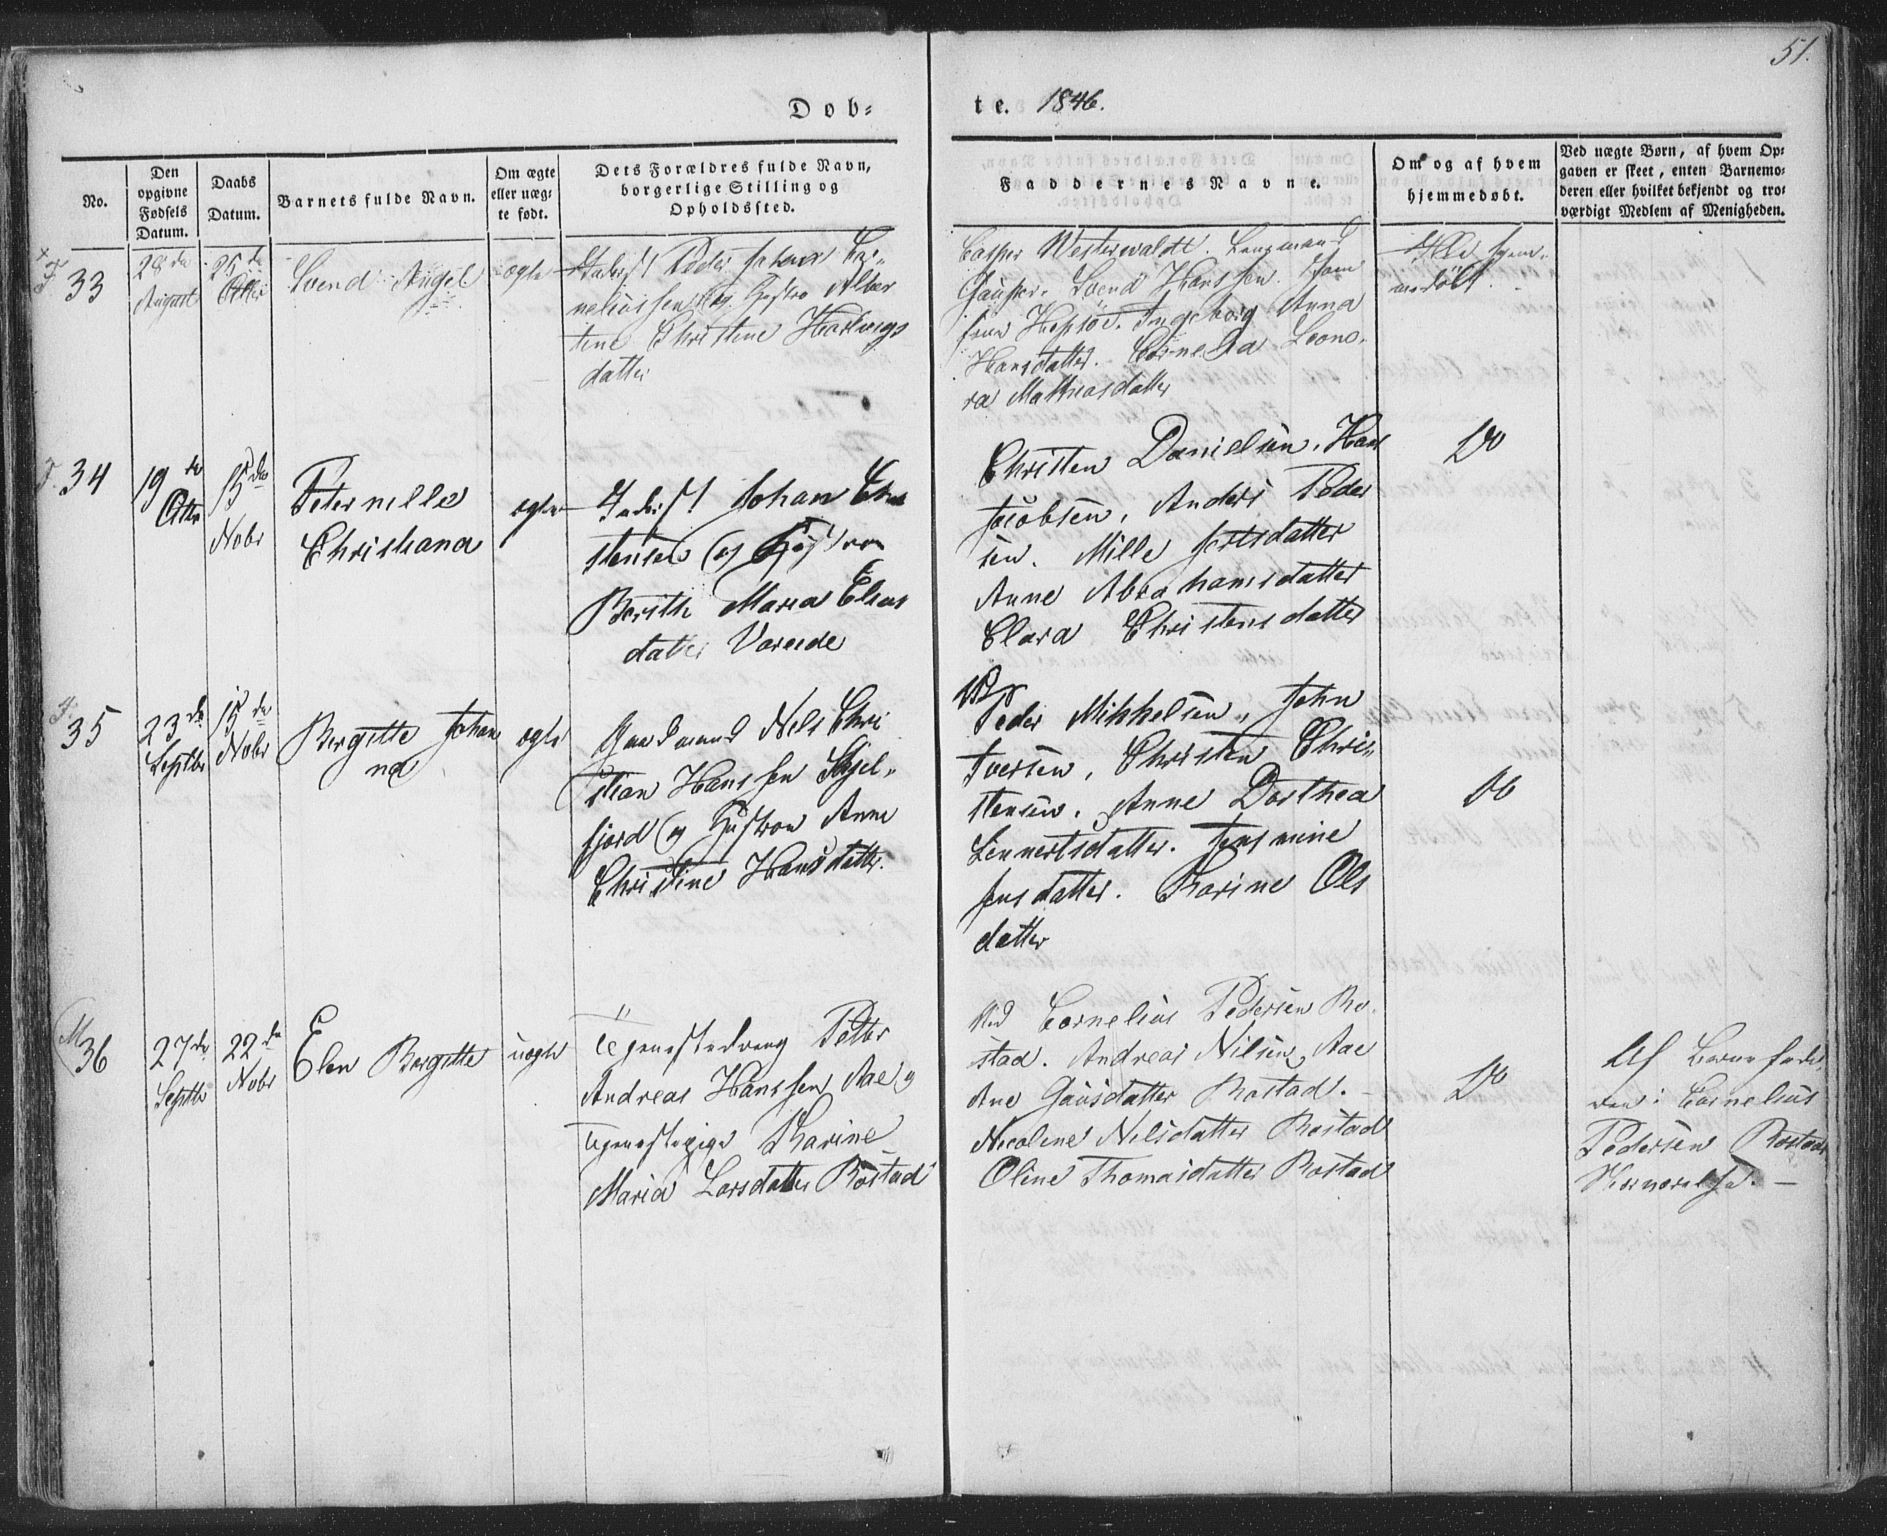 51.
Dob=
te. 1846.
No.
Den opgivne Fødsels Datum.
Daabs Datum.
Barnets fulde Navn.
Om ægte eller uæg= te født.
Dets Forældres fulde Navn, borgerlige Stilling og Opholdssted.
Faddernes Navne.
Om og af hvem hjemmedøbt.
Ved uægte Børn, af hvem Op= gaven er skeet, enten Barnemo= deren eller hvilket bekjendt og tro= værdigt Medlem af Menigheden.
33
28de August
25de Octbr
Svend Angel
ægte
Peder Johan Cor=
neliussen og Hustro Alber
tine Christine Hartvigs
datter
Casper Westerwaldt.
Svend Hanssen.
Ingeborg Anna
Hansdatter. Cornelia Leono=
ra Mathiasdatter
Ikke hjem=
medøbt.
34
19de Octbr
15de Novbr
Peternelle
Christiana
ægte
Inderst Johan Chri
stensen og Hustroe
Berith Maria Elias
datter Vareide
Christen Danielsen, Hans
Jacobsen, Anders Peder
sen. Mille Jertsdatter
Anne Abrahamsdatter
Clara Christensdatter
Do
35
23de Septbr
15de Novbr
Birgitte Johan
na
ægte
Gaardmand Nels Chri
stian Hanssen Skjel=
fjord og Hustroe Anne
Christine Hansdatter.
Peder Mikkelsen, John
Iversen, Christen Chri=
stensen, Anne Dorthea
Lennertsdatter. Jensmine
Jensdatter. Karine Ols
datter
Do
36
27de Septbr
22de Novbr
Elen Bergitte
uægte
Tjenestedreng Petter
Andreas Hanssen Aae og
Tjenestepige Karine
Maria Larsdatter Rostad
Cornelius Pedersen Ro=
stad. Andreas Nilsen Aae
Ane Gausdatter Rostad. -
Nicoline Nelsdatter Rostad
Oline Thomasdatter Rostad
Do
Af Barnefade
ren i Cornelius
Pedersen Rostads
Nærværelse. -